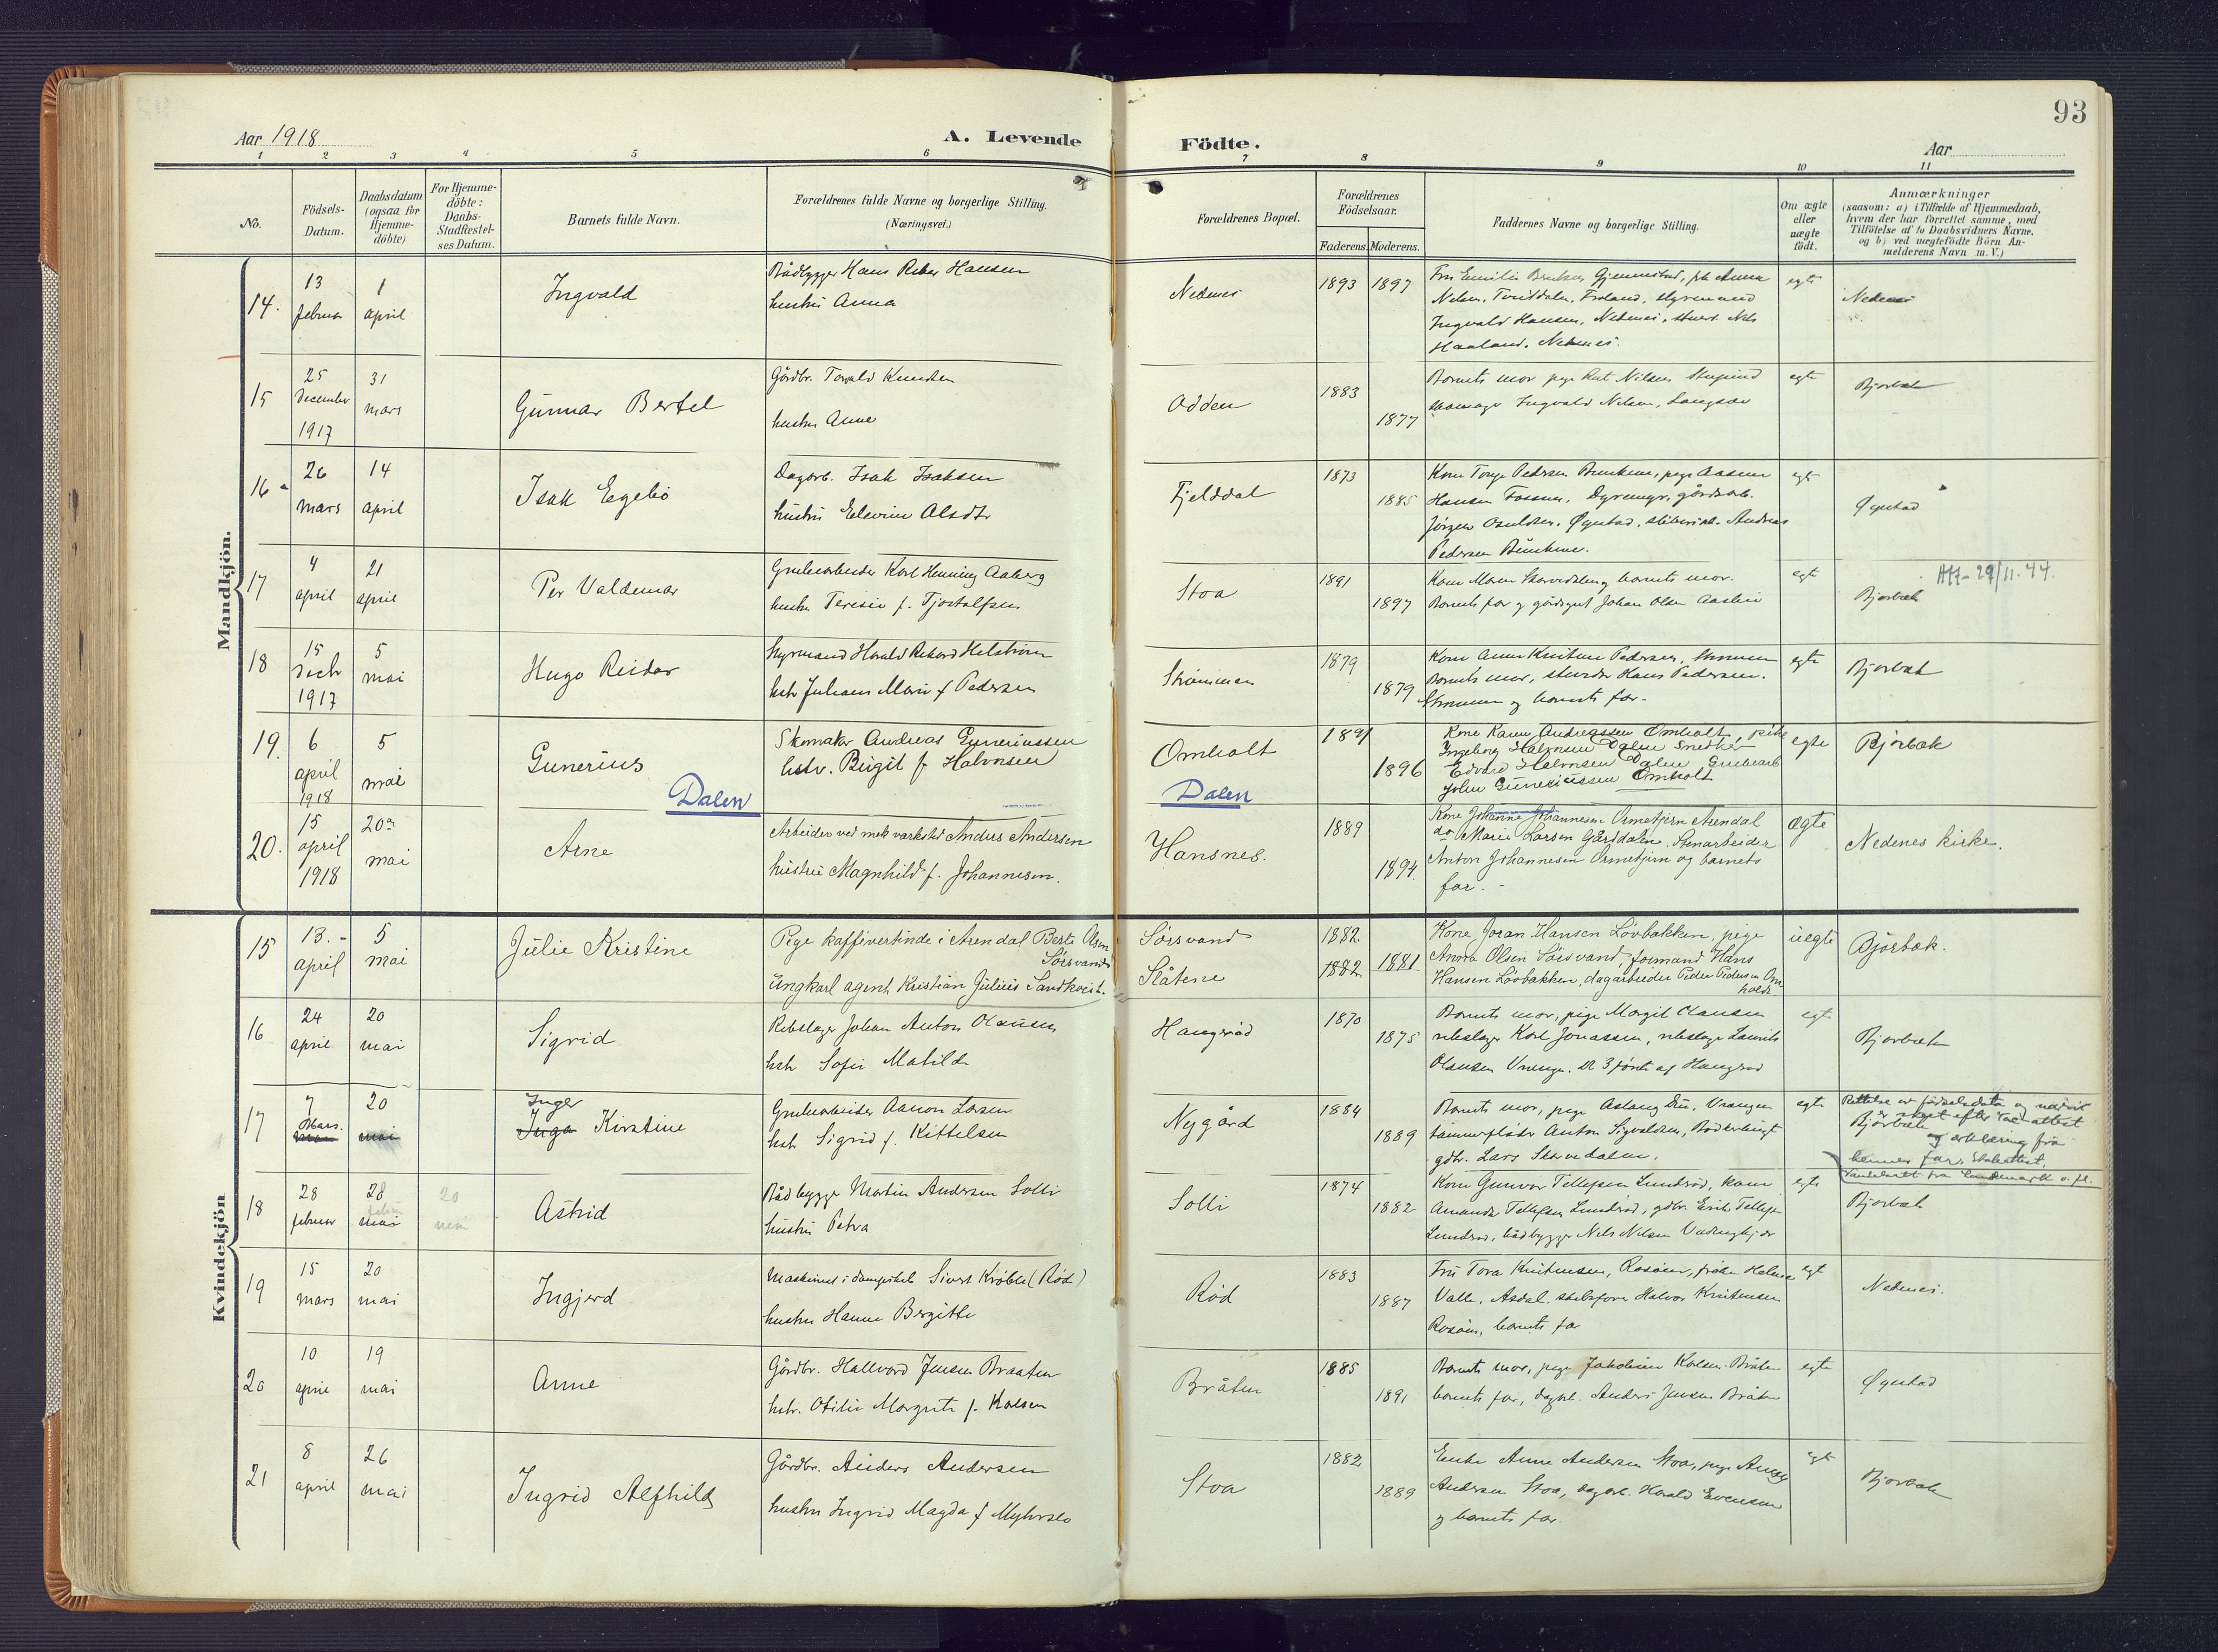 93
Aar 1918
A. Levende
Födte.
Aar
1 2 3 4 5 6 7 8 9 10 11
No.
Födsels-
Datum.
Daabsdatum
(ogsaa for
Hjemme-
döbte)
For Hjemme-
döbte:
Daabs-
Stadfæstel-
ses Datum.
Barnets fulde Navn.
Forældrenes fulde Navne og borgerlige Stilling.
(Næringsvei.)
Forældrenes Bopæl.
Forældrenes
Födselsaar.
Faderens. Moderens.
Faddernes Navne og borgerlige Stilling.
Om ægte
eller
uægte
födt.
Anmærkninger
(saasom: a) i Tilfælde af Hjemmedaab,
hvem der har forrettet samme, med
Tilföielse af to Daabsvidners Navne,
og b) ved uægtefödte Börn An-
melderens Navn m. V.)
Mandkjön.
14. 13 februar 1 april Ingvald
Hans Hansen
hustru Anna
Nedenes 1893 1897
Fru Emilie
Nilsen, Froland, styrmand
Ingvald Hansen, Nedenes, Nils
Haaland. Nedenes.
egte
Nedenes
15 25 December 1917 31 mars Gunnar Bertel
Gårdbr. Torvald Knudsen
hustru Anne
Odden 1883 1877
Barnets mor pige Nilsen
Ingvald Nilsen, Langsæv
egte
Bjorbæk
16 26 mars 14 april Isak Egeliö
Dagarb. Isak Isaksen
hustru Elevine Alsdtr
Fjelddal 1873 1885
Kone Pedersen pige
Hansen Fossum, gårdarb.
Jörgen Osuldsen. Øyestad, Andreas
Pedersen
egte
Øyestad
17 4 april 21 april Per Valdemar
Grubearbeider Karl Henning Aaberg
hustru Teresie f. Tjostolfsen
Stoa 1891 1897
Kone Maren og barnets mor.
Barnets far og Johan Olsen
egte
29/11.44.
Bjorbæk
18 15 Decbr 1917 5 mai Hugo Reidar
Styrmand Harald Helström
hstr Juliane Marie f Pedersen
Strömmen 1879 1879
Kone Anne Kristine Pedersen, Strömmen
Barnets mor, Hans Pedersen.
Strömmen og barnets far.
egte
Bjorbæk
19. 6 april 1918 5 mai Gunerius
Dalen
Skomaker Andreas Guneriussen
hstr. Birgit f Halvorsen
Omholt 1891 1896
Dalen
Kone Karen Andreassen Omholt, pike
Ingeborg Halvorsen Dalen Snedker
Edvard Halvorsen Dalen Grubearb
John Guneriussen Omholt
egte
Bjorbæk
20. 15 april 1918 20de mai Arne
Arbeider ved mek varksted Anders Andersen
hustru Magnhild f. Johannesen.
Hansnes. 1889 1894.
Kone Johanne Johannesen Ormetjern Arendal
do Marie Larsen Gårddalen, Stenarbeider
Anton Johannesen Ormetjern og barnets
far. -
ægte
Nedenes kirke.
Kvindekjön
15 13. - april 5 mai Julie Kristine
Pige kaffivertinde i Arendal Berte Olsen
Sörsvand
Ungkarl agent Kristian Julius Sandkvist.
Sörsvand 1882
Slåtene 1882 1881
Kone Joran Hansen Lövbakken, pige
Anna Olsen Sörsvand, formand Hans
Hansen Lövbakken, dagarbeider Peder Pedersen Om
holt
uegte
Bjorbæk.
16 24 april 20 mai Sigrid
Rebslager Johan Anton Olausen
hstr Sofie Matilde
Haugeröd 1870 1875
Barnets mor, pige Margit Olausen
rebslager Karl Jonassen, rebslager Laurits
Olausen Vrengen. De 3 förste af Haugeröd
egte
Bjorbæk
17 7 Mars. 20 mai Inger Inga Kirstine
Grubearbeider Aanon Larsen
hstr Sigrid f. Kittelsen
Nygård 1884 1889
Barnets mor, pige Aslaug Vrengen
tömmerfløder Anton Sigvaldsen,
gdbr. Lars Skarvedalen.
egte
Rettelse av födselsdata og navn
er skjet efter attest
Bjorbæk
og erklæring fra
hennes far.
18 28 februar 28 mai 20 mai Astrid
Bådbygger Martin Andersen Solli
hustru Petra
Solli 1874 1882
Kone Gunvor Tellefsen Lunderöd, kone
Amanda Tellefsen Lunderöd, gdbr. Erik Tellefsen
Lunderöd, bådbygger Nels Nilsen
egte
Bjorbæk
19 15 mars 20 mai Ingjerd
Maskinist i dampskib Sivert Kröbel (Röd)
hustru Hanne Bergitte
Röd 1883 1887
Fru Tora Kristensen, Rosöen, fröken Helene
Valle, Asdal. skibsförer Halvor Kristensen
Rosöen, barnets far
egt
Nedenes.
20 10 april 19 mai Anne
Gårdbr. Hallvard Jensen Braaten
hstr. Otilie Margrete f. Karlsen
Bråten 1885 1891
Barnets mor, pige Karlsen Bråten
barnets far, dagarb. Anders Jensen Bråten
egte
Øyestad
21 8 april 26 mai Ingrid Alfhild
Gårdbr. Anders Andersen
hustru Ingrid Magda f Myhrslo
Stoa 1882 1889
Enke Anne Andersen Stoa, pige
Andersen Stoa, dagarb. Harald Evensen
og barnets far.
egte
Bjorbæk